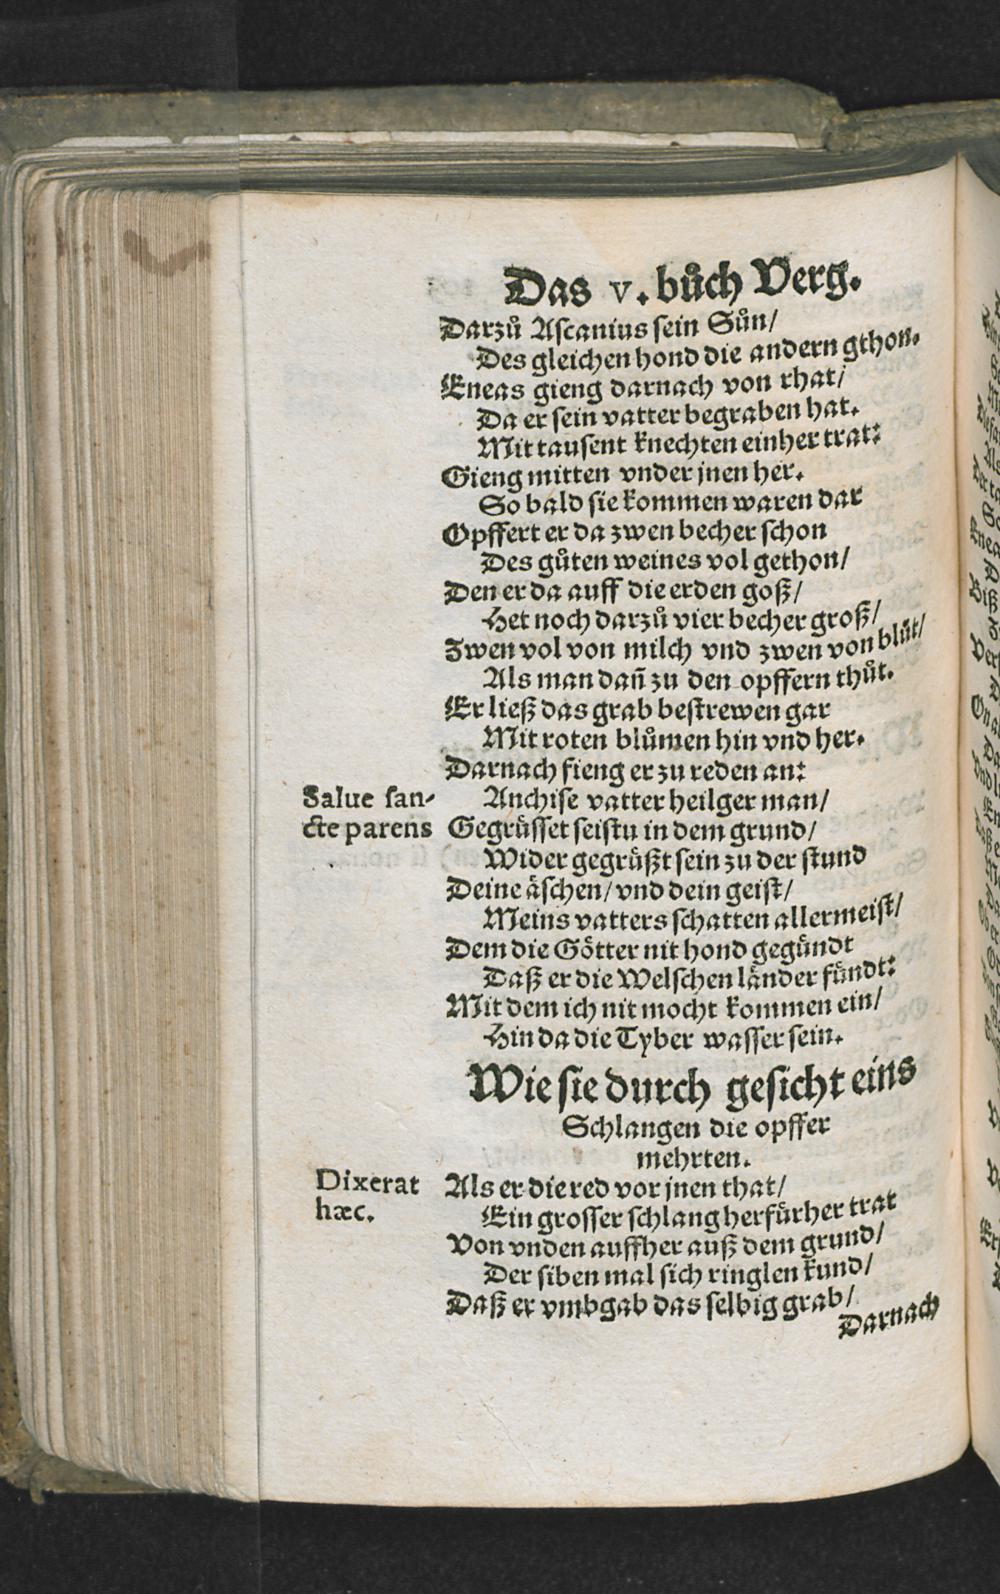 Das v. bůch Verg.
Darzů Aſcanius ſein Sůn/
Des gleichen hond die andern gthon.
Eneas gieng darnach von rhat/
Da er ſein vatter begraben hat.
Mit tauſent knechten einher trat:
Gieng mitten vnder jnen her.
So bald ſie kommen waren dar
Opffert er da zwen becher ſchon
Des gůten weines vol gethon/
Den er da auff die erden goß/
Het noch darzů vier becher groß/
Zwen vol von milch vnd zwen von blůt/
Als man dañ zu den opffern thůt.
Er ließ das grab beſtrewen gar
Mit roten blůmen hin vnd her.
Darnach fieng er zu reden an:
Salue ſan-
cte parens
Anchiſe vatter heilger man/
Gegrüſſet ſeiſtu in dem grund/
Wider gegrüßt ſein zu der ſtund
Deine äſchen/ vnd dein geiſt/
Meins vatters ſchatten allermeiſt/
Dem die Götter nit hond gegündt
Daß er die Welſchen länder fündt:
Mit dem ich nit mocht kommen ein/
Hin da die Tyber waſſer ſein.
Wie ſie durch geſicht eins
Schlangen die opffer
mehrten.
Dixerat
hæc.
Als er die red vor jnen that/
Ein groſſer ſchlang herfürher trat
Von vnden auffher auß dem grund/
Der ſiben mal ſich ringlen kund/
Daß er vmbgab das ſelbig grab/
Darnach